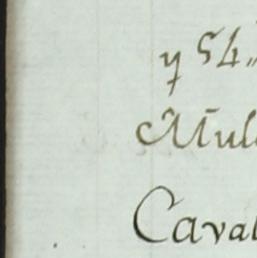 y 54,,
Mul
Caval